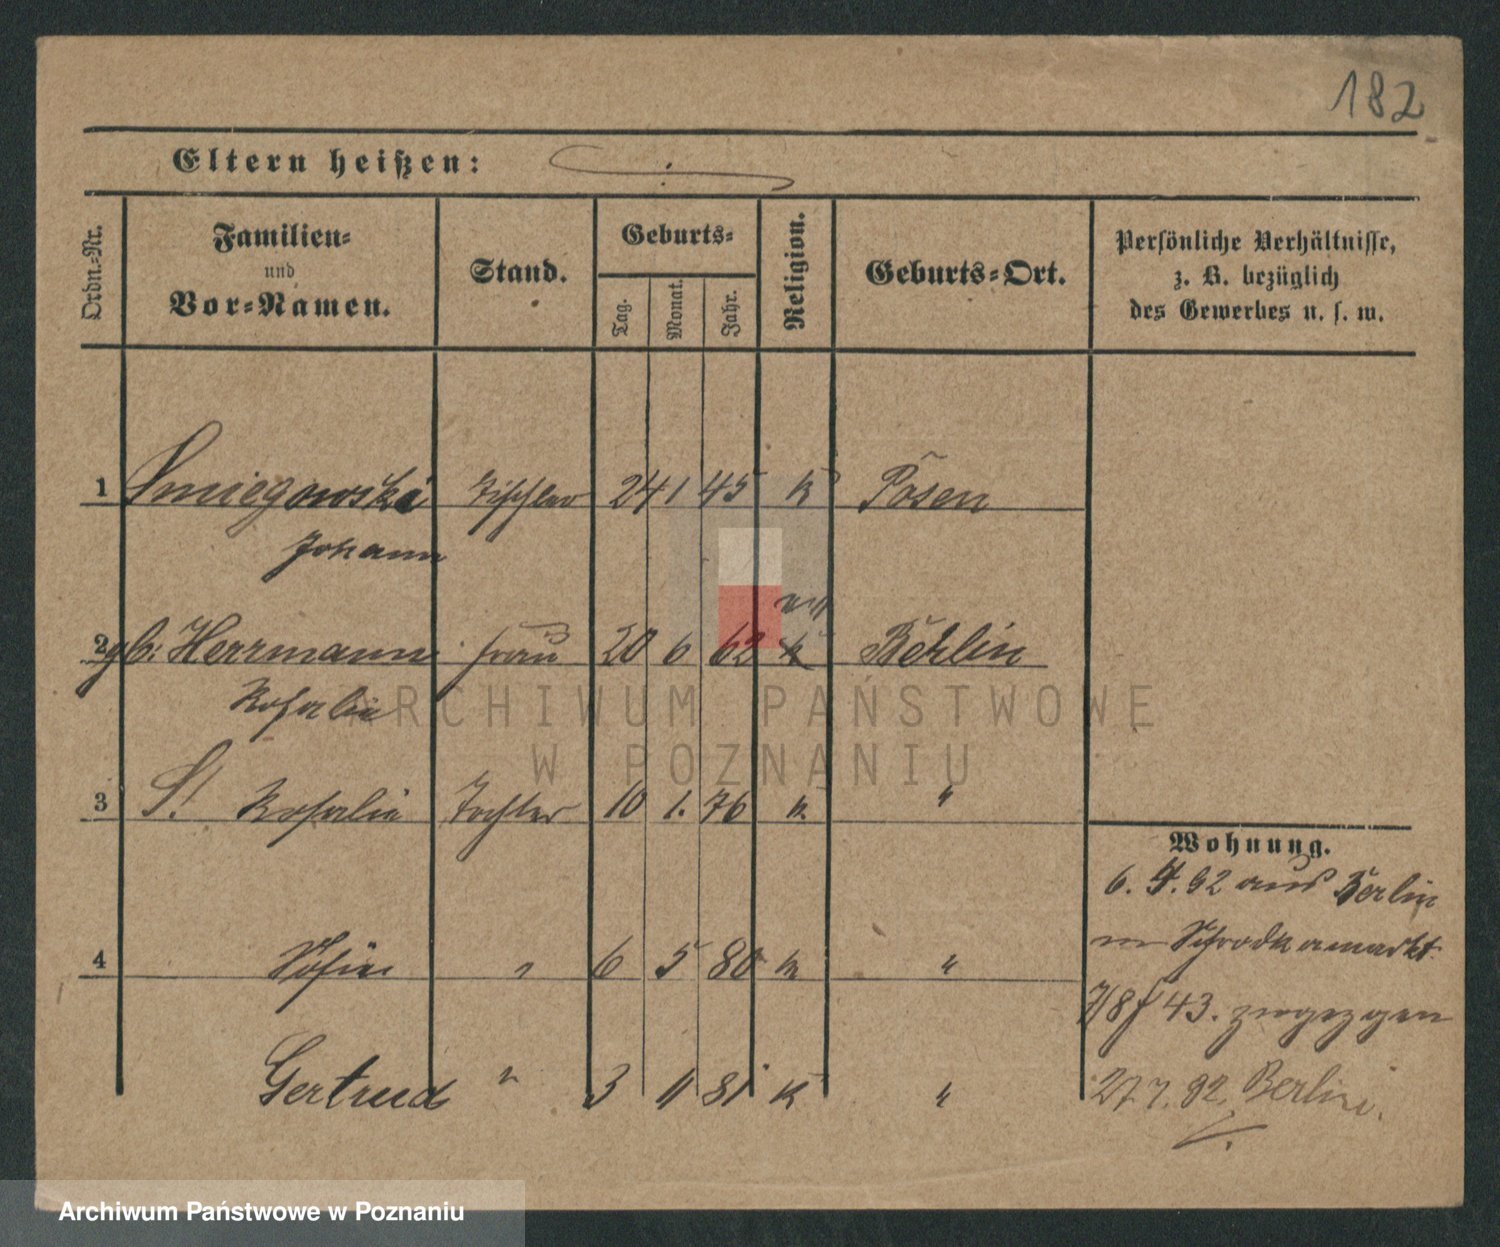 182
Eltern heißen:
Ordn.-Nr.
Familien-
und
Vor-Namen.
Stand.
Geburts-
Tag.
Monat.
Jahr.
Religion.
Geburts-Ort.
Persönliche Verhältnisse,
z. B. bezüglich
des Gewerbes u. s. w.
1 Smiegowski Tischler 24 1 45 K Posen
Johann
2 gb: Herrmann Frau 20 6 62 K Berlin
Rosalie
3 S. Rosalie Tochter 10 1. 76 K "
Wohnung.
6. 4. 92 aus Berlin
4 Sofie " 6 5 80 K "
Schrodkamarkt
7/8 43. zugezogen
Gertrud " 3 11 81 K "
27 7. 92. Berlin.
ARCHIWUM PAŃSTWOWE
W POZNANIU
Archiwum Państwowe w Poznaniu